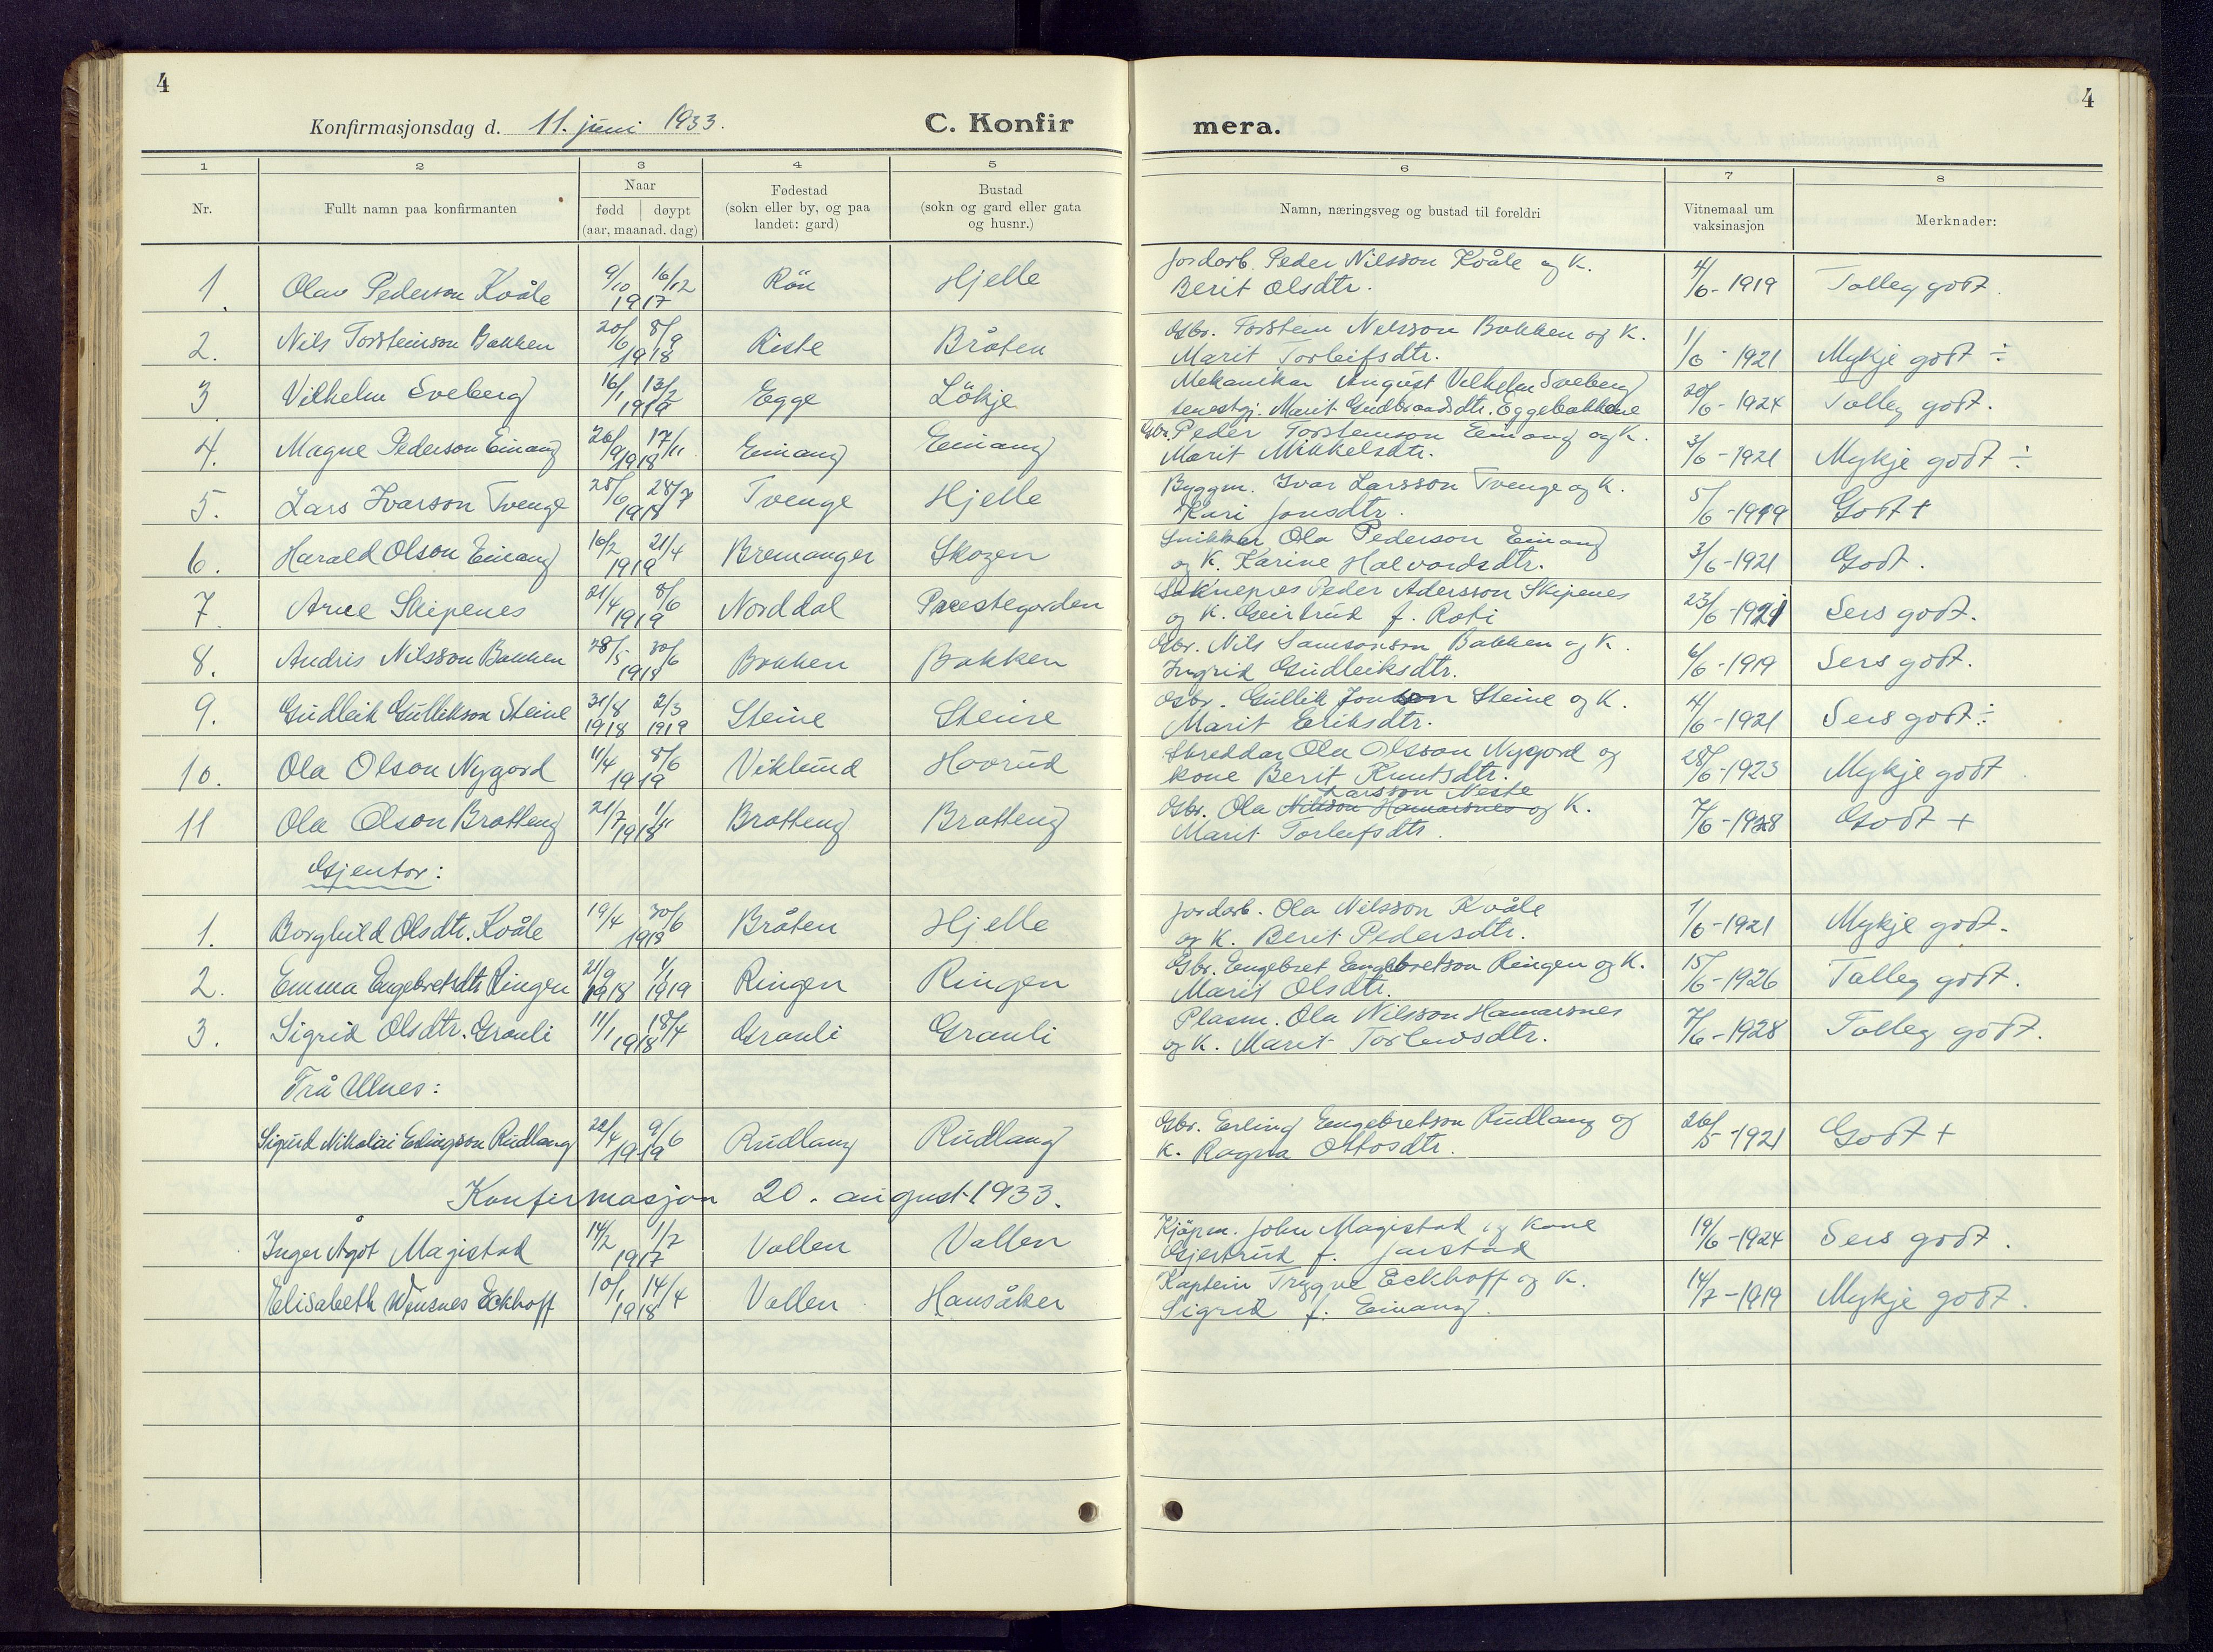 4
4
Konfirmasjonsdag d. 11. juni 1933.
C. Konfir
mera.
1 2 3 4 5 6 7 8
Nr.
Fullt namn paa konfirmanten
Naar
fødd | døypt
(aar, maanad. dag)
Fødestad
(sokn eller by, og paa
landet: gard)
Bustad
(sokn og gard eller gata
og husnr.)
Namn, næringsveg og bustad til foreldri
Vitnemaal um
vaksinasjon
Merknader:
1. Olav Pederson Kvåle 9/10 16/12 1917 Rön Hjelle Jordarb. Peder Nilsson Kvåle og K.
Berit Olsdtr. 4/6-1919 Tolleg godt.
2. Nils Torsteinson Bakken 20/6 8/9 1918 Riste Bråten Gbr. Torstein Nilsson Bakken og K.
Marit Torleifsdtr. 1/6-1921 Mykje godt ÷
3 Vilhelm Sveberg 16/1 13/2 1919 Egge Lökje Mekanikar August Vilhelm Sveberg
tenestgj. Marit Gudbrandsdtr. Eggebakkene 20/6-1924 Tolleg godt.
4. Magne Pederson Einang 26/9 17/11 1918 Einang Einang Gbr. Peder Torsteinson Einang og K.
Marit Mikkelsdtr. 3/6-1921 Mykje godt ÷
5. Lars Ivarson Tvenge 25/6 28/7 1918 Tvenge Hjelle Byggm. Ivar Larsson Tvenge og K.
Kari Jonsdtr. 5/6-1919 Godt +
6. Harald Olson Einang 16/2 21/4 1919 Bremanger Skogen Snikkar Ola Pederson Einang
og K. Karine Halvardsdtr. 3/6-1921 Godt.
7 Arne Skipenes 21/4 8/6 1919 Norddal Prestegarden Soknepres Peder Adersson Skipenes
og K. Geirtrud f. Roti 23/6-1921 Sers godt.
8. Andris Nilsson Bakken 28/5 30/6 1918 Bakken Bakken Gbr. Nils Samsonson Bakken og K.
Ingrid Gudleiksdtr. 6/6-1919 Sers godt.
9. Gudleik Gullikson Steine 31/8 1918 2/3 1919 Steine Steine Gbr. Gullik Jonson Steine og K.
Marit Eriksdtr. 4/6-1921 Sers godt ÷
10. Ola Olson Nygard 11/4 8/6 1919 Viklund Havrud Skreddar Ola Olsson Nygard og
kone Berit Knutsdtr. 28/6-1923 Mykje godt
Larsson Neste
11 Ola Olson Bratteng 21/7 1/11 1918 Bratteng Bratteng Gbr. Ola Nilsson Hamarsnes og K.
Marit Torleifsdtr. 7/6-1928 Godt +
Gjentor:
1. Borghild Olsdtr. Kvåle 19/4 30/6 1918 Bråten Hjelle Jordarb. Ola Nilsson Kvåle
og K. Berit Pedersdtr. 1/6-1921 Mykje godt.
2. Emma Engebretsdtr Ringen 21/9 1918 1/1 1919 Ringen Ringen Gbr. Engebret Engebretson Ringen og K.
Marit Olsdtr. 15/6-1926 Tolleg godt.
3. Sigrid Olsdtr. Granli 11/1 18/4 1918 Granli Granli Plasm. Ola Nilsson Hamarsnes
og K. Marit Torleivsdtr. 7/6-1928 Tolleg godt.
Frå Ulnes:
Sigurd Nikolai Erlingson Rudlang 22/4 9/6 1919 Rudlang Rudlang Gbr. Erling Engebretson Rudlang og
K. Ragna Ottosdtr. 26/5-1921 Godt +
Konfirmasjon 20. august 1933.
Inger Ågot Magistad 14/2 1/7 1917 Vollen Vollen Kjöpm. John Magistad og kone
Gjertrud f. Jarstad 19/6-1924 Sers godt.
Elisabeth Wensnes Eckhoff 10/1 14/4 1918 Vollen Hansåker Kaptein Trygve Eckhoff og K.
Sigrid f. Einang. 14/7-1919 Mykje godt.